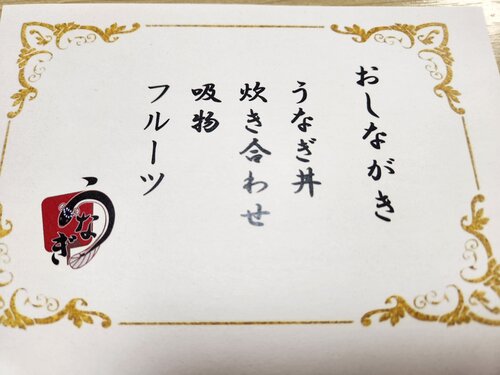 おしながき
うなぎ丼
炊き合わせ
吸物
フルーツ
うなぎ